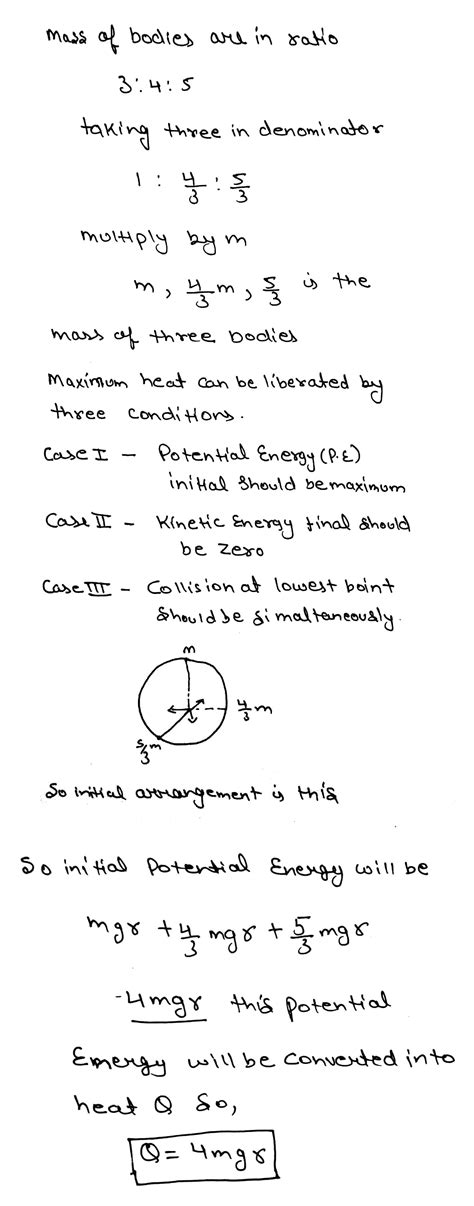 Mass of bodies are in ratio
3:4:5
taking three in denominator
1 : 4/3 : 5/3
multiply by m
m, 4/3 m, 5/3 is the
mass of three bodies
Maximum heat can be liberated by
three conditions.
Case I - Potential Energy (P.E)
initial should be maximum
Case II - Kinetic Energy final should
be zero
Case III - Collision at lowest point
should be simaltaneously.
m
4/3 m
5/3 m
So initial arrangement is this
So initial Potential Energy will be
mgr + 4/3 mgr + 5/3 mgr
-4mgr this potential
Emergy will be converted into
heat Q So,
Q = 4mgr